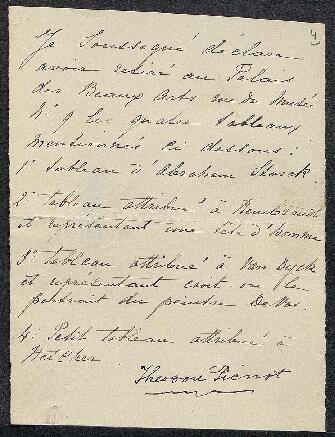 4
Je Soussigné déclare
avoir retiré au Palais
des Beaux Arts rue du Musée
N° 9 les quatre tableaux
mentionnés ci dessous :
1° tableau d'Abraham Storck
2° tableau attribué à
et représentant une tête d'homme
3° tableau attribué à Van Dyck
et représentant croit on le
portrait du peintre De Vos.
4° Petit tableau attribué à
Théodore